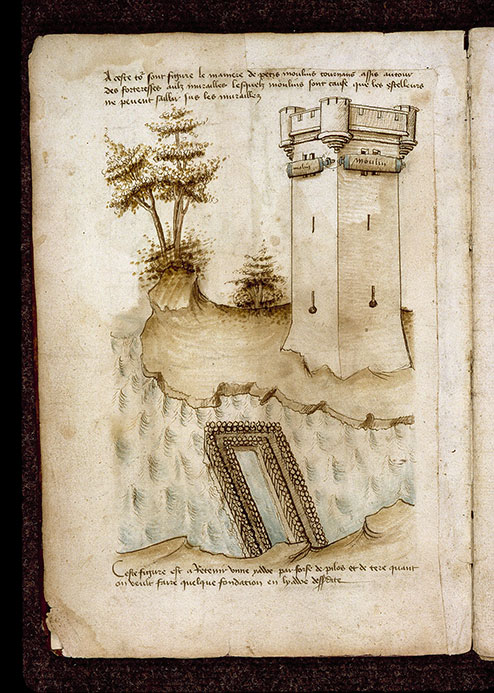 A ceste to~ sont figure le maniere de petis moulins tournans assis autour
des forteresses aulz murailles lesquelz moulins sont cause que les eschelleurs
ne pevent saillir sus les murailles
moulin
moulin
Ceste figure est a Retenir une yawe par forse de pilos et de tere quant
on veult faire quelque fondation en lyawe